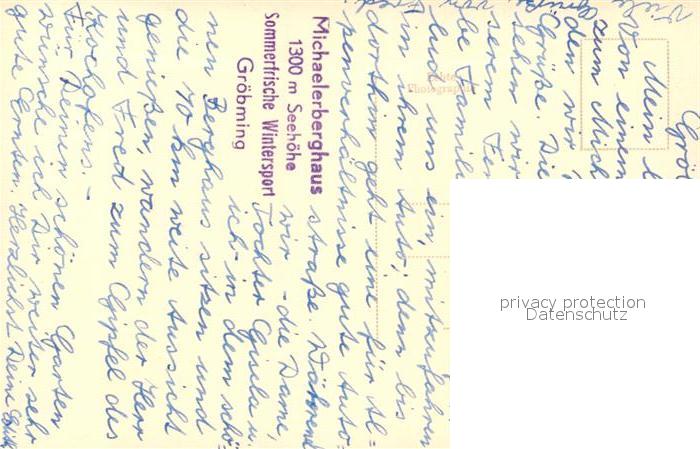 Gröb
Mein l
Von einem
zum Mich
den wir
Grüße. Die
sehen wir
serem Fen
be Famil
lud uns ein, mitzufahren
in ihrem Auto, denn bis
dorthin geht eine für Al=
penverhältnisse gute Auto=
straße. Während
wir - die Dame,
Tochter Gisela u.
ich - in dem schö=
nen Berghaus sitzen und
die 40 km weite Aussicht
genießen, wandern der Herr
und Fred zum Gipfel des
Kochofens. -
Für Deinen schönen Garten
wünsche ich Dir weiter sehr
gute Ernten. Herzlichst Deine Edith
Viele
Grüße
von
Fred
Michaelerberghaus
1300 m Seehöhe
Sommerfrische Wintersport
Gröbming
Echte
Photographie
privacy protection
Datenschutz